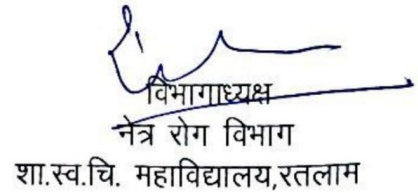 विभागाध्यक्ष
नेत्र रोग विभाग
शा.स्व.चि. महाविद्यालय,रतलाम